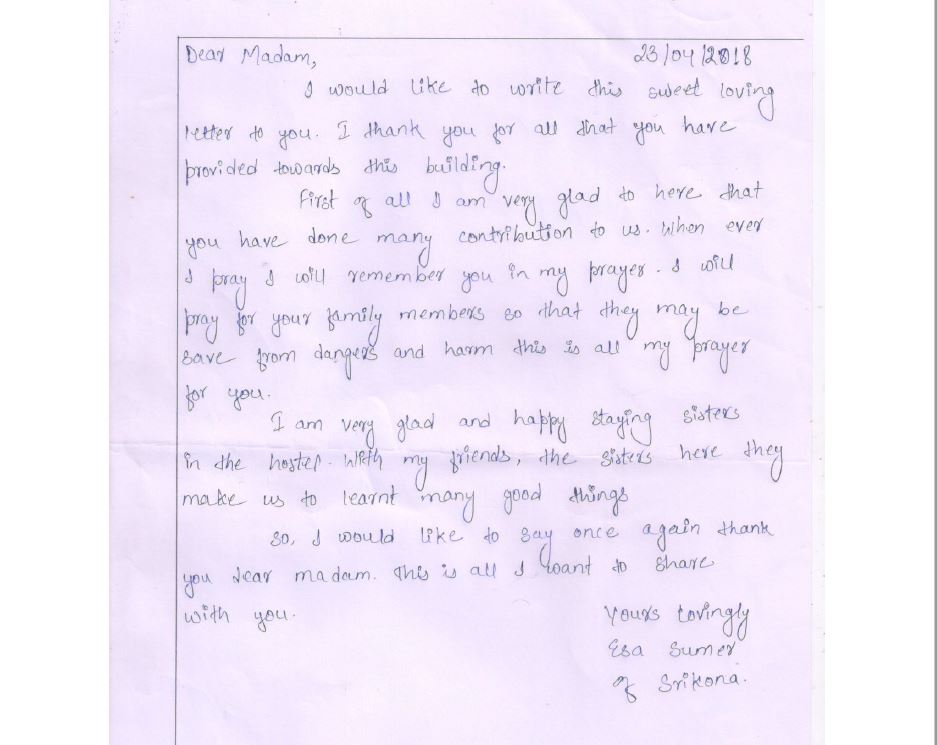 Dear Madam, 23/04/2018
I would like to write this sweet loving
letter to you. I thank you for all that you have
provided towards this building.
First of all I am very glad to here that
you have done many contribution to us. When ever
I pray I will remember you in my prayer. I will
pray for your family members so that they may be
save from dangers and harm this is all my prayer
for you.
I am very glad and happy staying sisters
in the hostel. With my friends, the sisters here they
make us to learnt many good things
So, I would like to say once again thank
you dear madam. This is all I want to share
with you.
Yours lovingly
Esa Sumer
of Srikona.